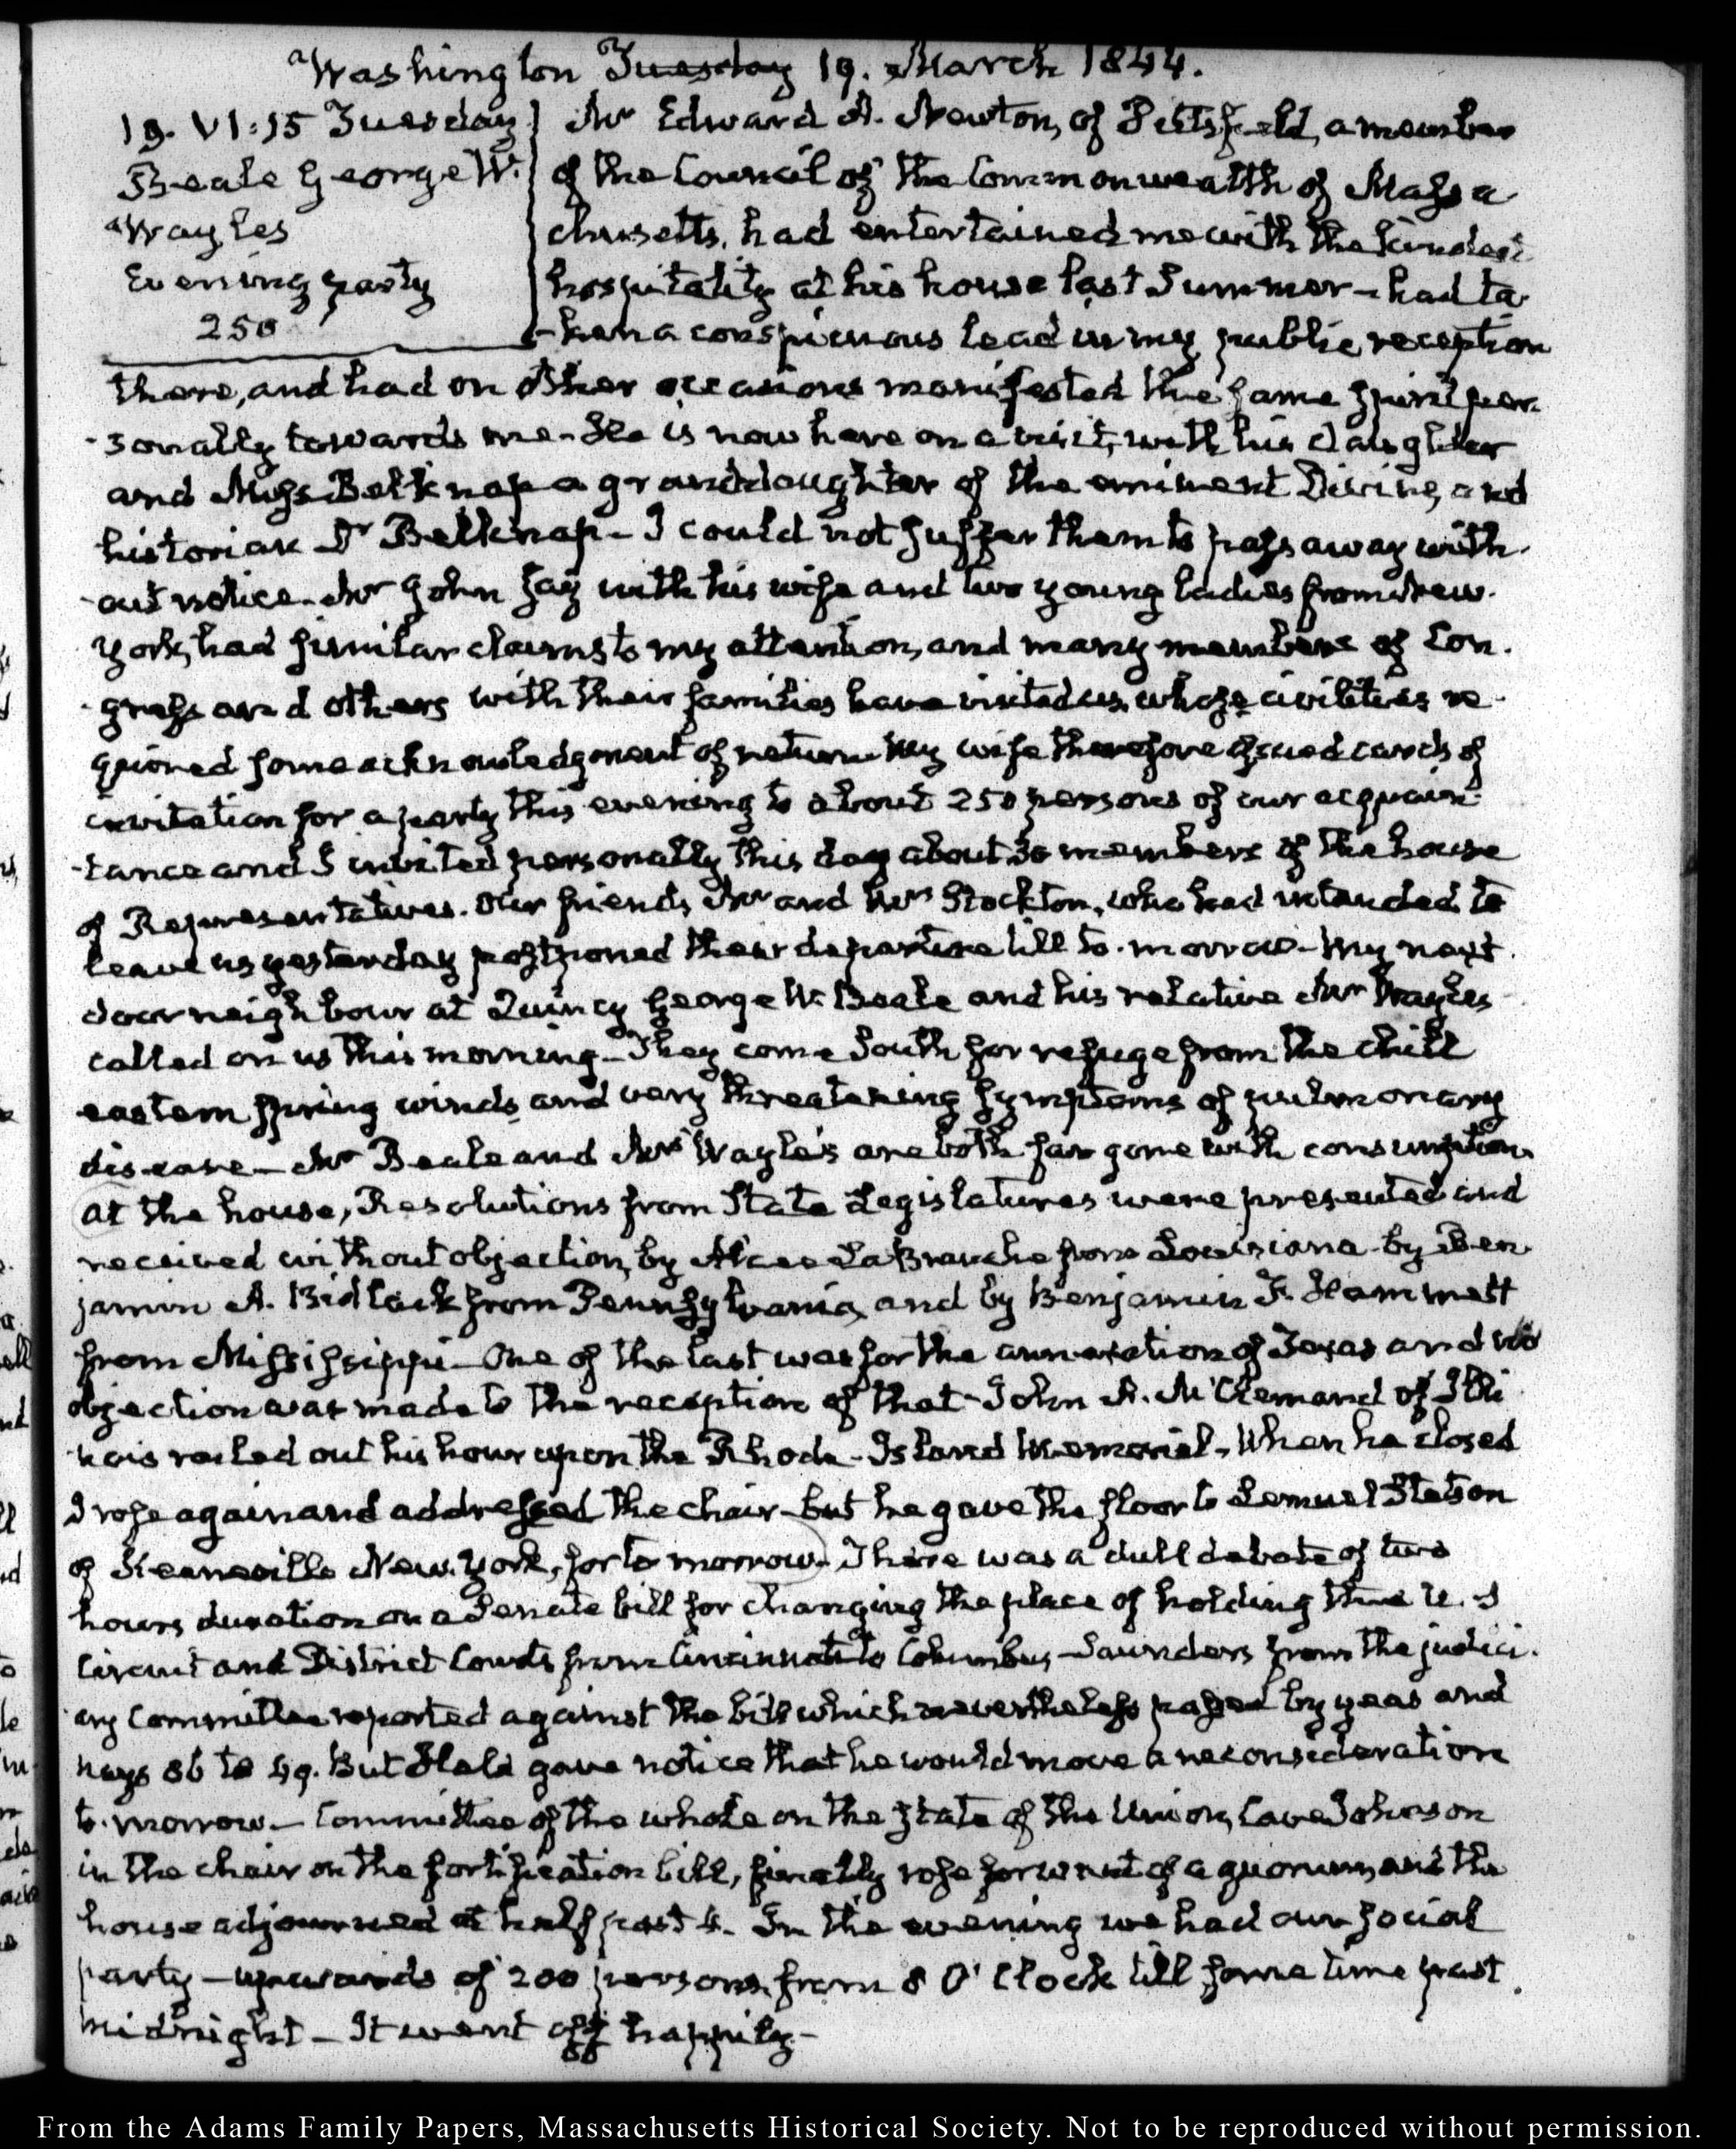 Washington Tuesday 19. March 1844.
19. VI:15 Tuesday
Beale George W.
Wayles
Evening party
250
Mr Edward A. Newton, of Pittsfield, a member
of the Council of the Commonwealth of Massa
chusetts, had entertained me with the kindest
hospitality at his house last Summer - had ta
-ken a conspicuous lead in my public reception
there, and had on other occasions manifested the same spirit per-
-sonally towards me - He is now here on a visit, with his daughter
and Miss Belknap a granddaughter of the eminent Divine, and
historian Dr Belknap - I could not suffer them to pass away with-
-out notice. Mr John Jay with his wife and two young ladies from New-
York, had similar claims to my attention, and many members of Con-
-gress and others with their families have visited us, whose civilities re-
quired some acknowledgment of return. My wife therefore issued cards of
invitation for a party this evening to about 250 persons of our acquain-
-tance and I invited personally this day about 30 members of the house
of Representatives. Our friends, Mr and Mrs Stockton, who had intended to
leave us yesterday postponed their departure till to-morrow - My next
door neighbour at Quincy George W. Beale and his relative Mr Wayles
called on us this morning - They come South for refuge from the chill
eastern spring winds and very threatening symptoms of pulmonary
disease - Mr Beale and Mr Wayles are both far gone with consumption.
At the house, Resolutions from State Legislatures were presented and
received without objection, by Alcee LaBranche from Louisiana - by Ben-
jamin A. Bidlack from Pennsylvania, and by Benjamin F. Hammett
from Mississippi - One of the last was for the annexation of Texas and no
objection was made to the reception of that - John A. McClernand of Illi
-nois railed out his hour upon the Rhode-Island Memorial. When he closed
I rose again and addressed the chair - but he gave the floor to Lemuel Stetson
of Keeseville New-York, for to morrow. There was a dull debate of two
hours duration on a Senate bill for changing the place of holding the U. S
Circuit and District Courts from Cincinnati to Columbus - Saunders from the judici-
ary Committee reported against the bill which nevertheless passed by yeas and
nays 86 to 49. But Hale gave notice that he would move a reconsideration
to-morrow - Committee of the whole on the state of the Union, Cave Johnson
in the chair on the fortification bill, finally rose for want of a quorum, and the
house adjourned at half past 4. In the evening we had our social
party - upwards of 200 persons, from 8 O'Clock till some time past
midnight - It went off happily -
From the Adams Family Papers, Massachusetts Historical Society. Not to be reproduced without permission.